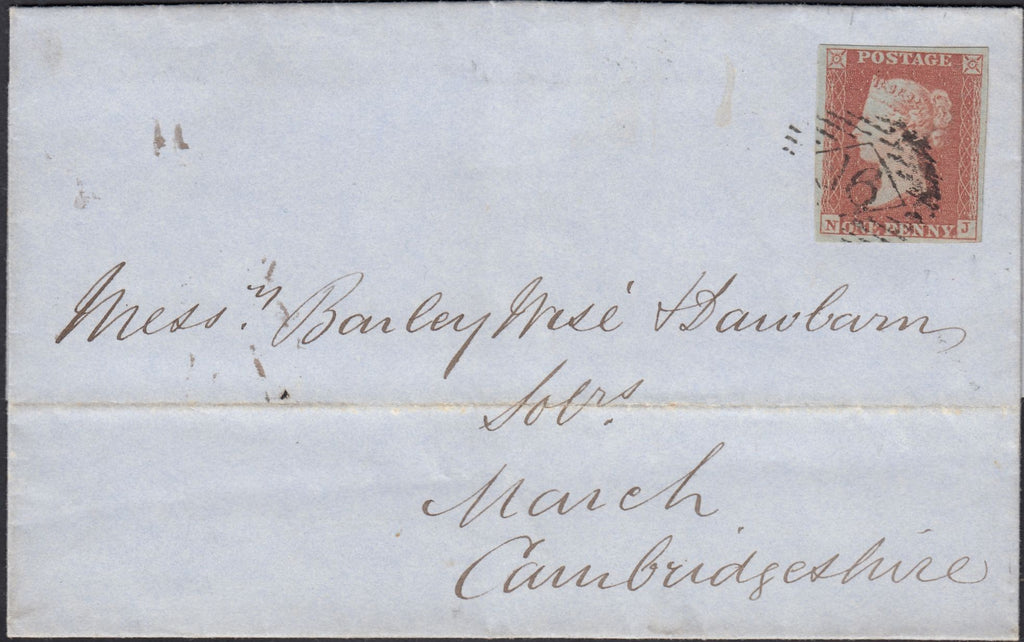 POSTAGE
6
N ONE PENNY. J
Messrs. Barley Wise & Dawbarn
Solrs.
March
Cambridgeshire